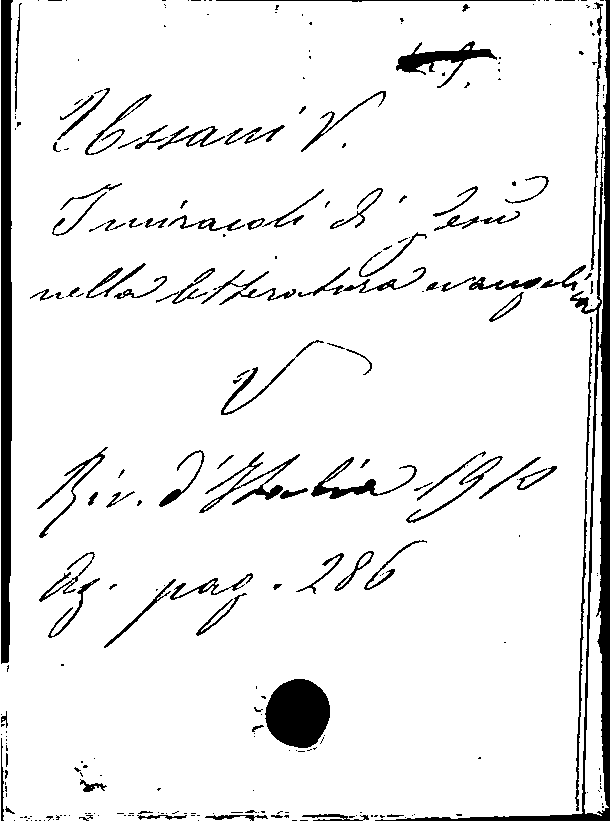 Ussani V.
I miracoli di Gesù
nella letteratura evangelica
V
Riv. d'Italia 1910
Ag. pag. 286